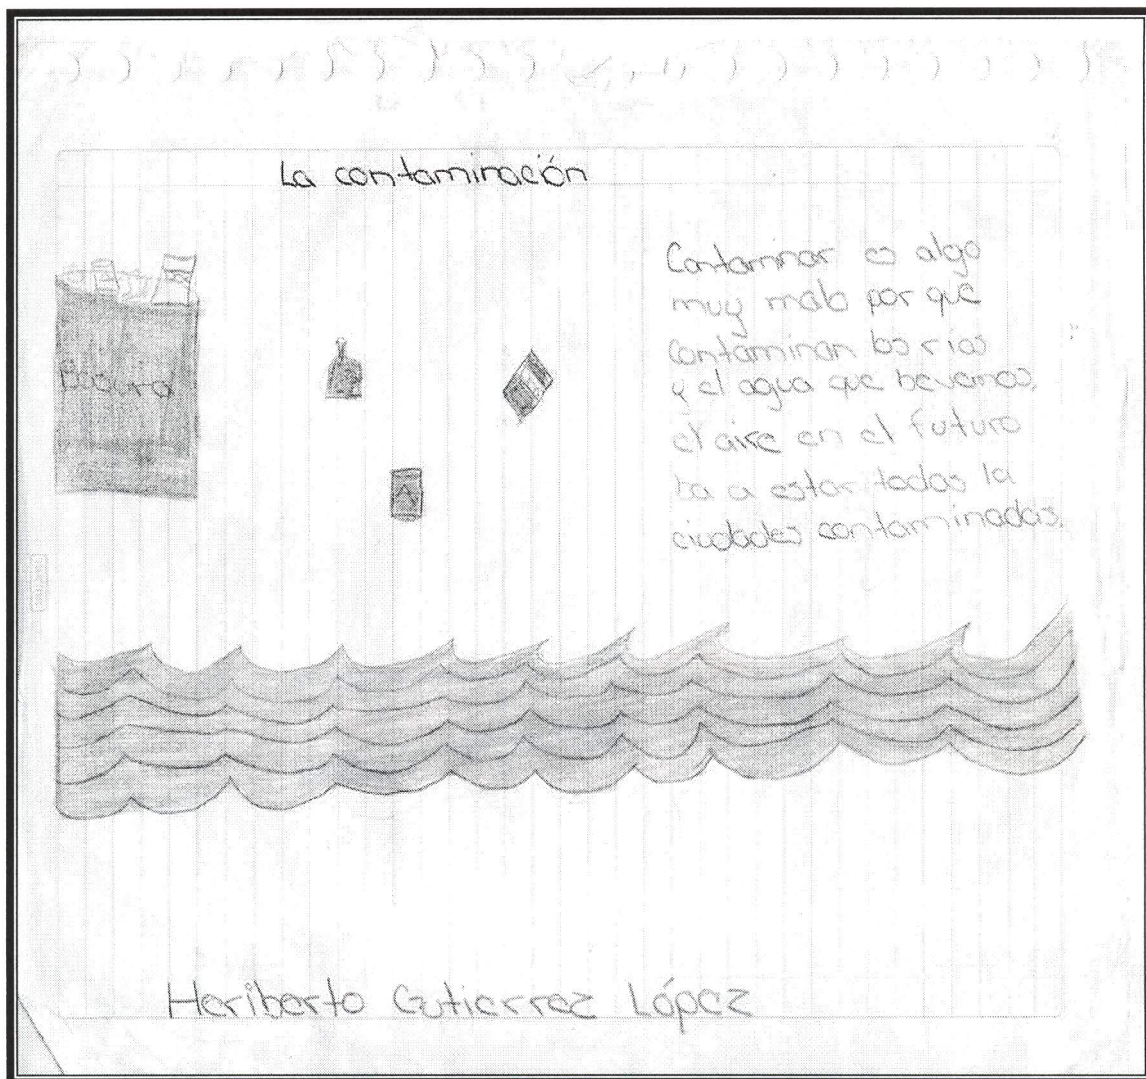 La contaminación
Basura
Contaminar es algo
muy malo por que
contaminan los rios
y el agua que bevemos,
el aire en el futuro
ba a estar todas la
ciudades contaminadas.
Heriberto Gutierrez López